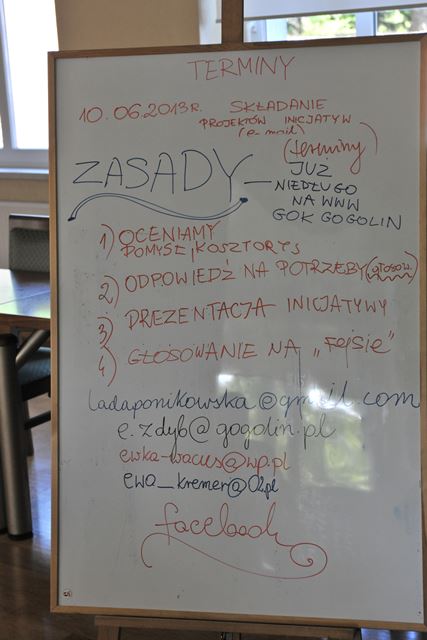 TERMINY
10.06.2013r. SKŁADANIE
PROJEKTÓW INICJATYW
(e-mail)
(terminy)
ZASADY — JUŻ
NIEDŁUGO
NA WWW
GOK GOGOLIN
1) OCENIAMY
POMYSŁ, KOSZTORYS
2) ODPOWIEDŹ NA POTRZEBY (głosow.)
3) PREZENTACJA INICJATYWY
4) GŁOSOWANIE NA „Fejsie"
ladaponikowska@gmail.com
e.zdyb@gogolin.pl
ewka-wacus@wp.pl
ewa_kremer@o2.pl
facebook